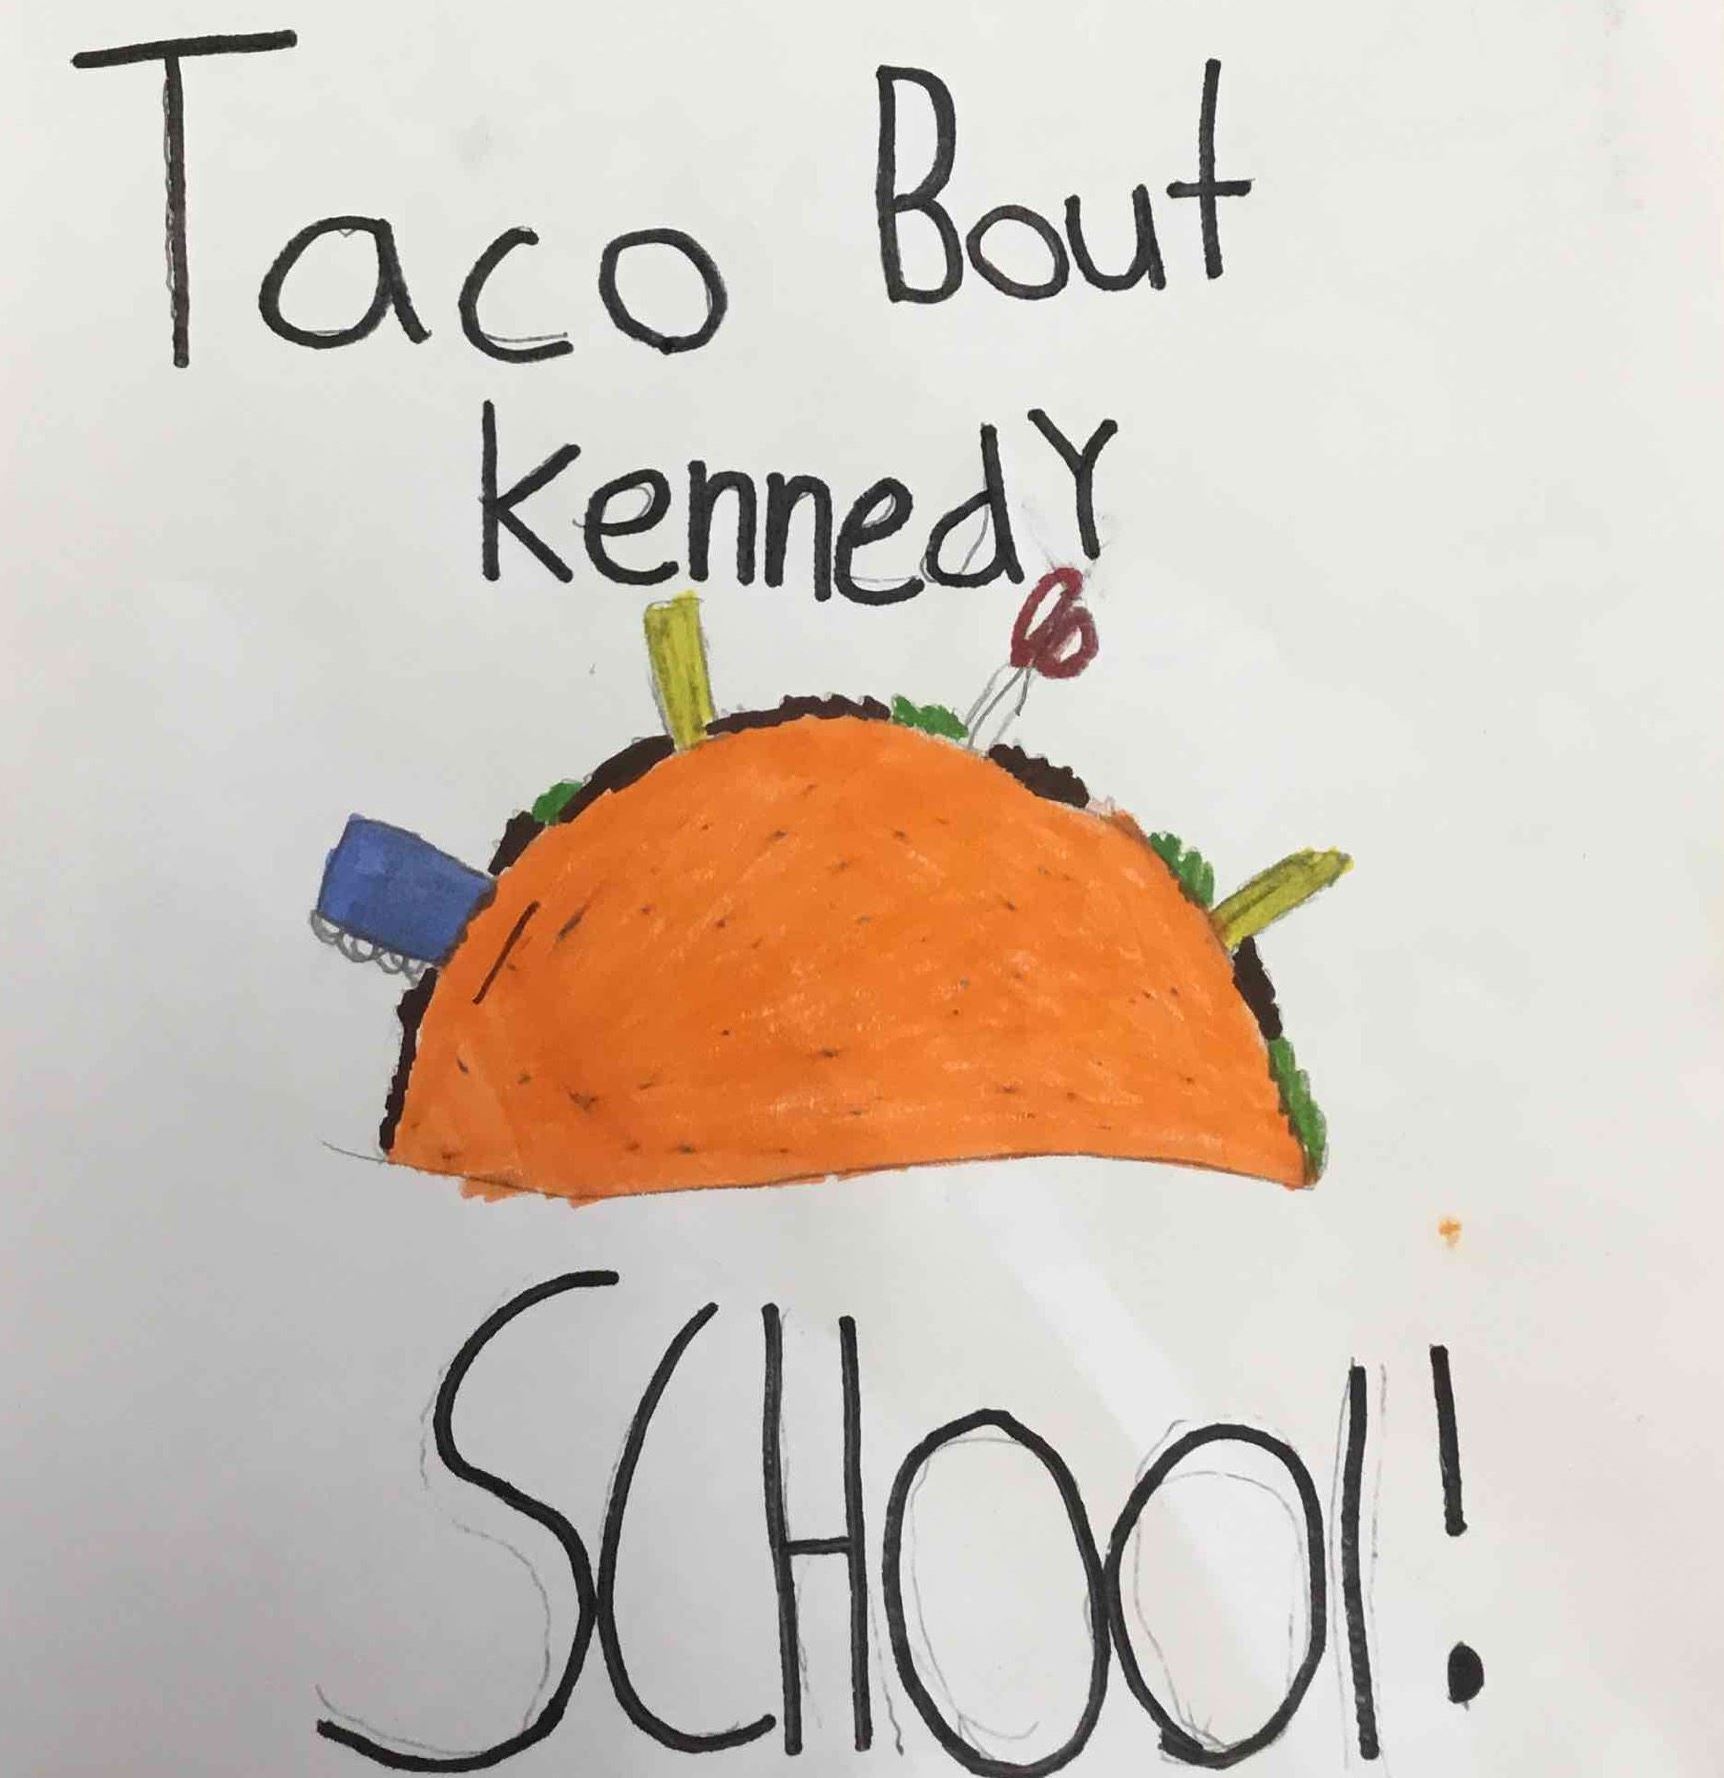 Taco Bout
kennedY
SCHOOl!